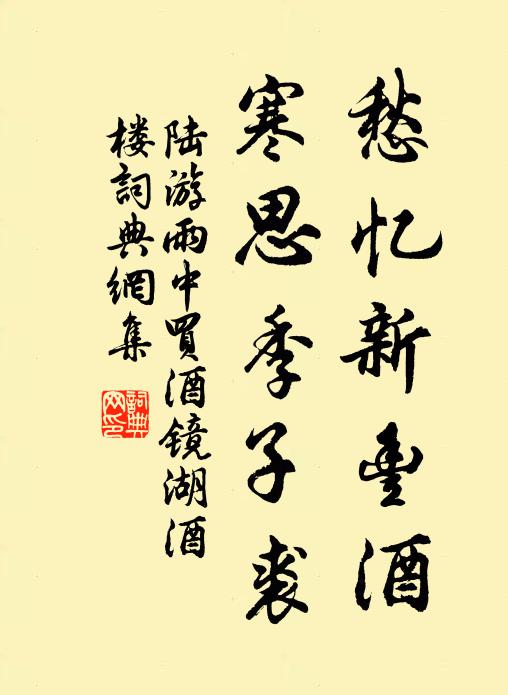 愁忆新豊酒
寒思季子裘
陆游雨中買酒镜湖酒
楼詞典網集
詞典
网印